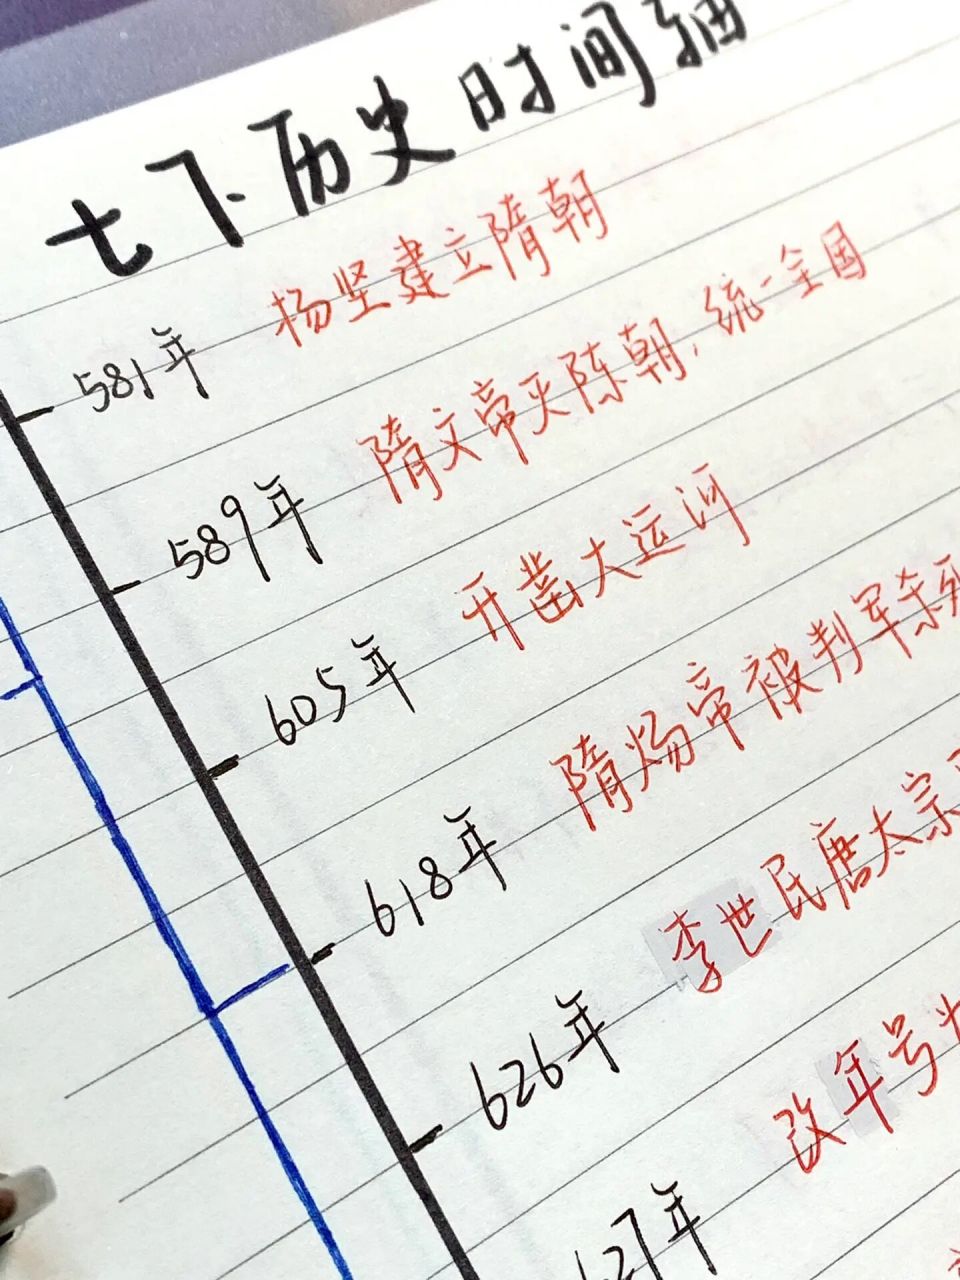 七下历史时间轴
581年 杨坚建立隋朝
589年 隋文帝灭陈朝，统一全国
605年 开凿大运河
618年 隋炀帝被判军杀死
626年 李世民唐太宗
627年 改年号为